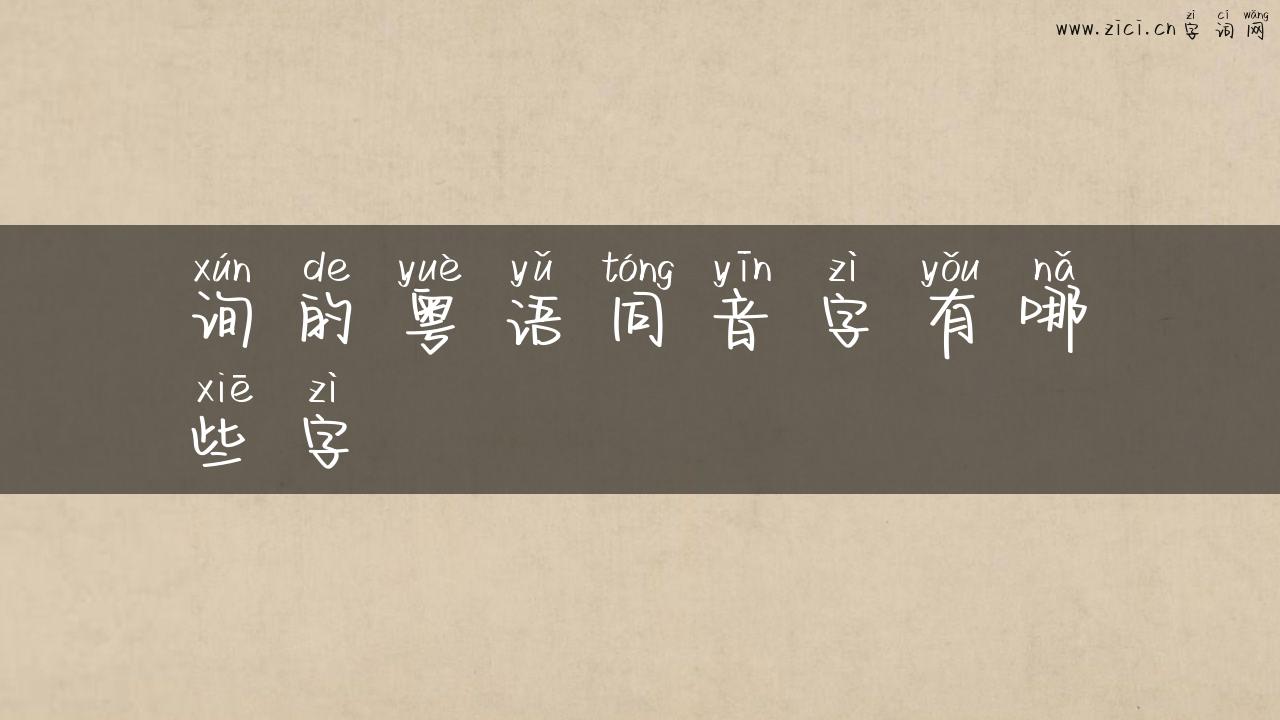 zì cí wǎng
www.zici.cn 字词网
xún de yuè yǔ tóng yīn zì yǒu nǎ
询的粤语同音字有哪
xiē zì
些字